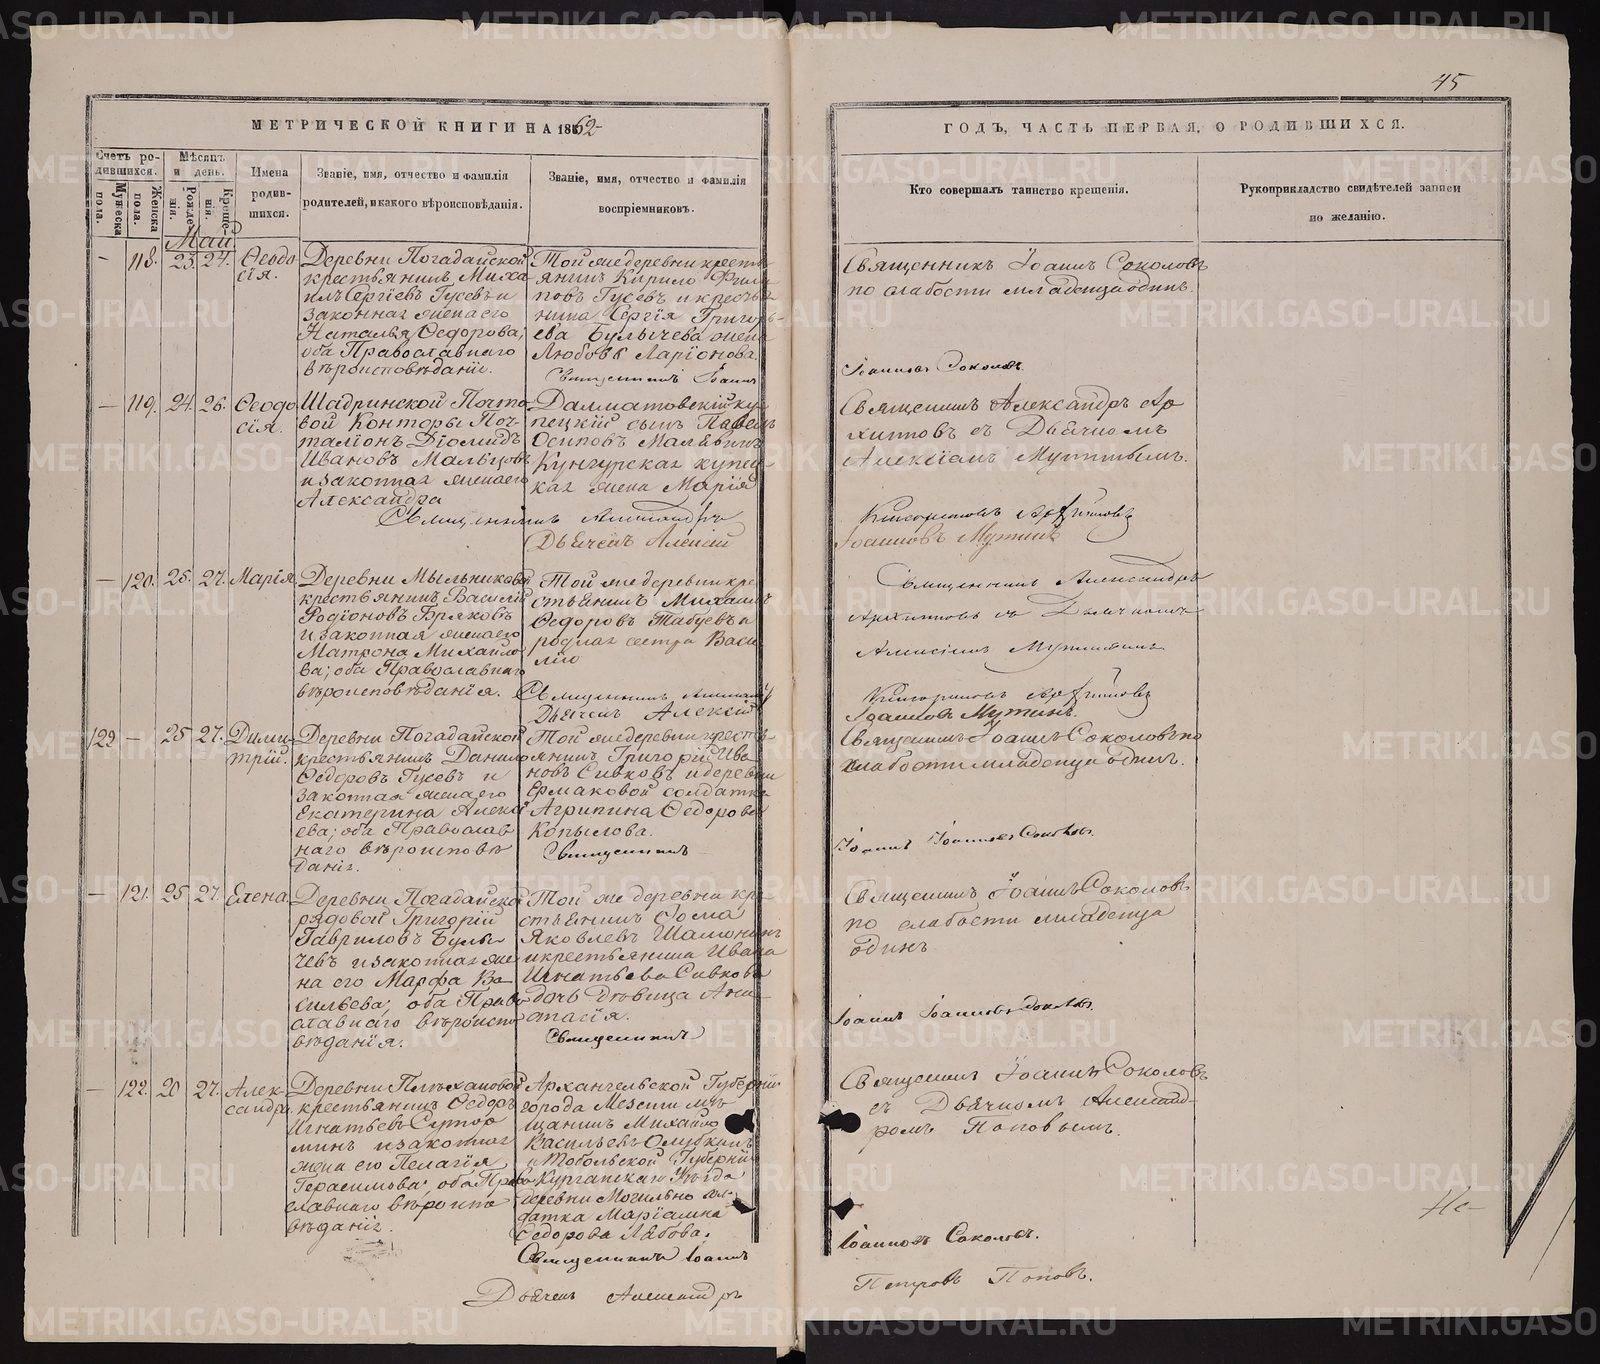 45
МЕТРИЧЕСКОЙ КНИГИ НА 1862
ГОДЪ, ЧАСТЬ ПЕРВАЯ, О РОДИВШИХСЯ.
Счетъ родившихся.
Мужеска пола.
Женска пола.
Мѣсяцъ и день.
Рожденія.
Крещенія.
Имена родившихся.
Званіе, имя, отчество и фамилія
родителей, и какого вѣроисповѣданія.
Званіе, имя, отчество и фамилія
воспріемниковъ.
Кто совершалъ таинство крещенія.
Рукоприкладство свидѣтелей записи
по желанію.
Май
— 118. 23. 24. Ѳеодо
сія.
Деревни Погадайской
крестьянинъ Миха
илъ Сергіевъ Гусевъ и
законная жена его
Наталья Ѳедорова;
оба Православнаго
вѣроисповѣданія.
Той же деревни кресть
янинъ Кирило Фили
повъ Гусевъ и крестья
нина Сергія Григорь-
ева Булычева жена
Любовь Ларіонова.
Священникъ Іоаннъ Соколовъ
по слабости младенца одинъ.
Священникъ Іоаннъ
Іоанновъ Соколовъ.
— 119. 24. 26. Ѳеодо
сія.
Шадринской Почто
вой Конторы Поч-
таліонъ Діомидъ
Ивановъ Мальцовъ
и законная жена его
Александра
Далматовскій ку
пецкій сынъ Павелъ
Осиповъ Малѣвинъ
Кунгурская купец
кая жена Марія
Священникъ Александръ Ар
хиповъ съ Дьячкомъ
Алексіемъ Мутинымъ.
Священникъ Александръ
Дьячекъ Алексій
Іоанновъ Мутинъ
— 120. 25. 27. Марія
Деревни Мыльниковой
крестьянинъ Василій
Родіоновъ Бряковъ
и законная жена его
Матрона Михайло
ва; оба Православнаго
вѣроисповѣданія.
Той же деревни кре
стьянинъ Михаилъ
Ѳедоровъ Табуевъ и
родная сестра Васи
лію
Священникъ Александръ
Архиповъ съ Дьячкомъ
Алексіемъ Мутинымъ
Священникъ Александръ
Дьячекъ Алексій
Іоанновъ Мутинъ.
122 — 25 27. Дими
трій.
Деревни Погадайской
крестьянинъ Данило
Ѳедоровъ Гусевъ и
законная жена его
Екатерина Алексѣ
ева; оба Православ
наго вѣроисповѣ
данія.
Той же деревни кресть
янинъ Григорій Ива
новъ Сивковъ и деревни
Ермаковой солдатка
Агрипина Ѳедорова
Копылова.
Священникъ
Священникъ Іоаннъ Соколовъ по
слабости младенца одинъ.
Іоаннъ Іоанновъ Соколовъ.
— 121. 25 27. Елена
Деревни Погадайской
рядовой Григорій
Гавриловъ Булы
чевъ и законная же
на его Марфа Ва
сильева; оба Право
славнаго вѣроиспо
вѣданія.
Той же деревни кре
стьянинъ Ѳома
Яковлевъ Шамонинъ
и крестьянина Ивана
Игнатьева Сивкова
дочь дѣвица Ана
стасія.
Священникъ
Священникъ Іоаннъ Соколовъ
по слабости младенца
одинъ
Іоаннъ Іоанновъ Соколовъ.
— 122. 20 27. Алек-
сандра
Деревни Плѣхановой
крестьянинъ Ѳедоръ
Игнатьевъ Сутор
минъ и законная
жена его Пелагія
Герасимова; оба Право
славнаго вѣроиспо
вѣданія.
Архангельской Губерніи
города Мезени мѣ
щанинъ Михайло
Васильевъ Олубкинъ
и Тобольской Губерніи
Курганскаго Уѣзда
деревни Могильно сол-
датка Маріамна
Ѳедорова Лябова.
Священникъ Іоаннъ Соколовъ
съ Дьячкомъ Александ-
ромъ Поповымъ.
Священникъ Іоаннъ
Іоанновъ Соколовъ.
Дьячекъ Александръ
Петровъ Поповъ.